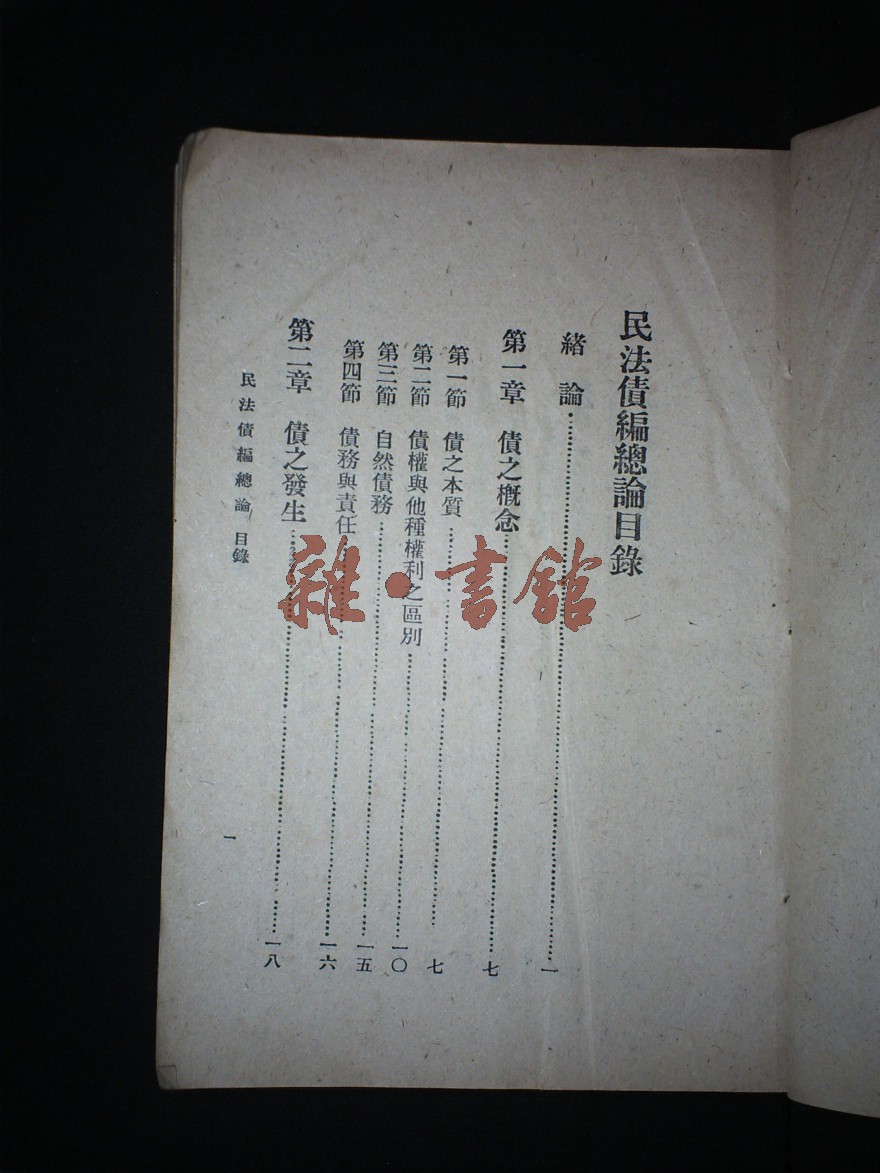 民法債編總論目錄
緒論……一
第一章 債之概念……七
第一節 債之本質……七
第二節 債權與他種權利之區別……一〇
第三節 自然債務……一五
第四節 債務與責任……一六
第二章 債之發生……一八
民法債編總論 目錄
一
雜·書館